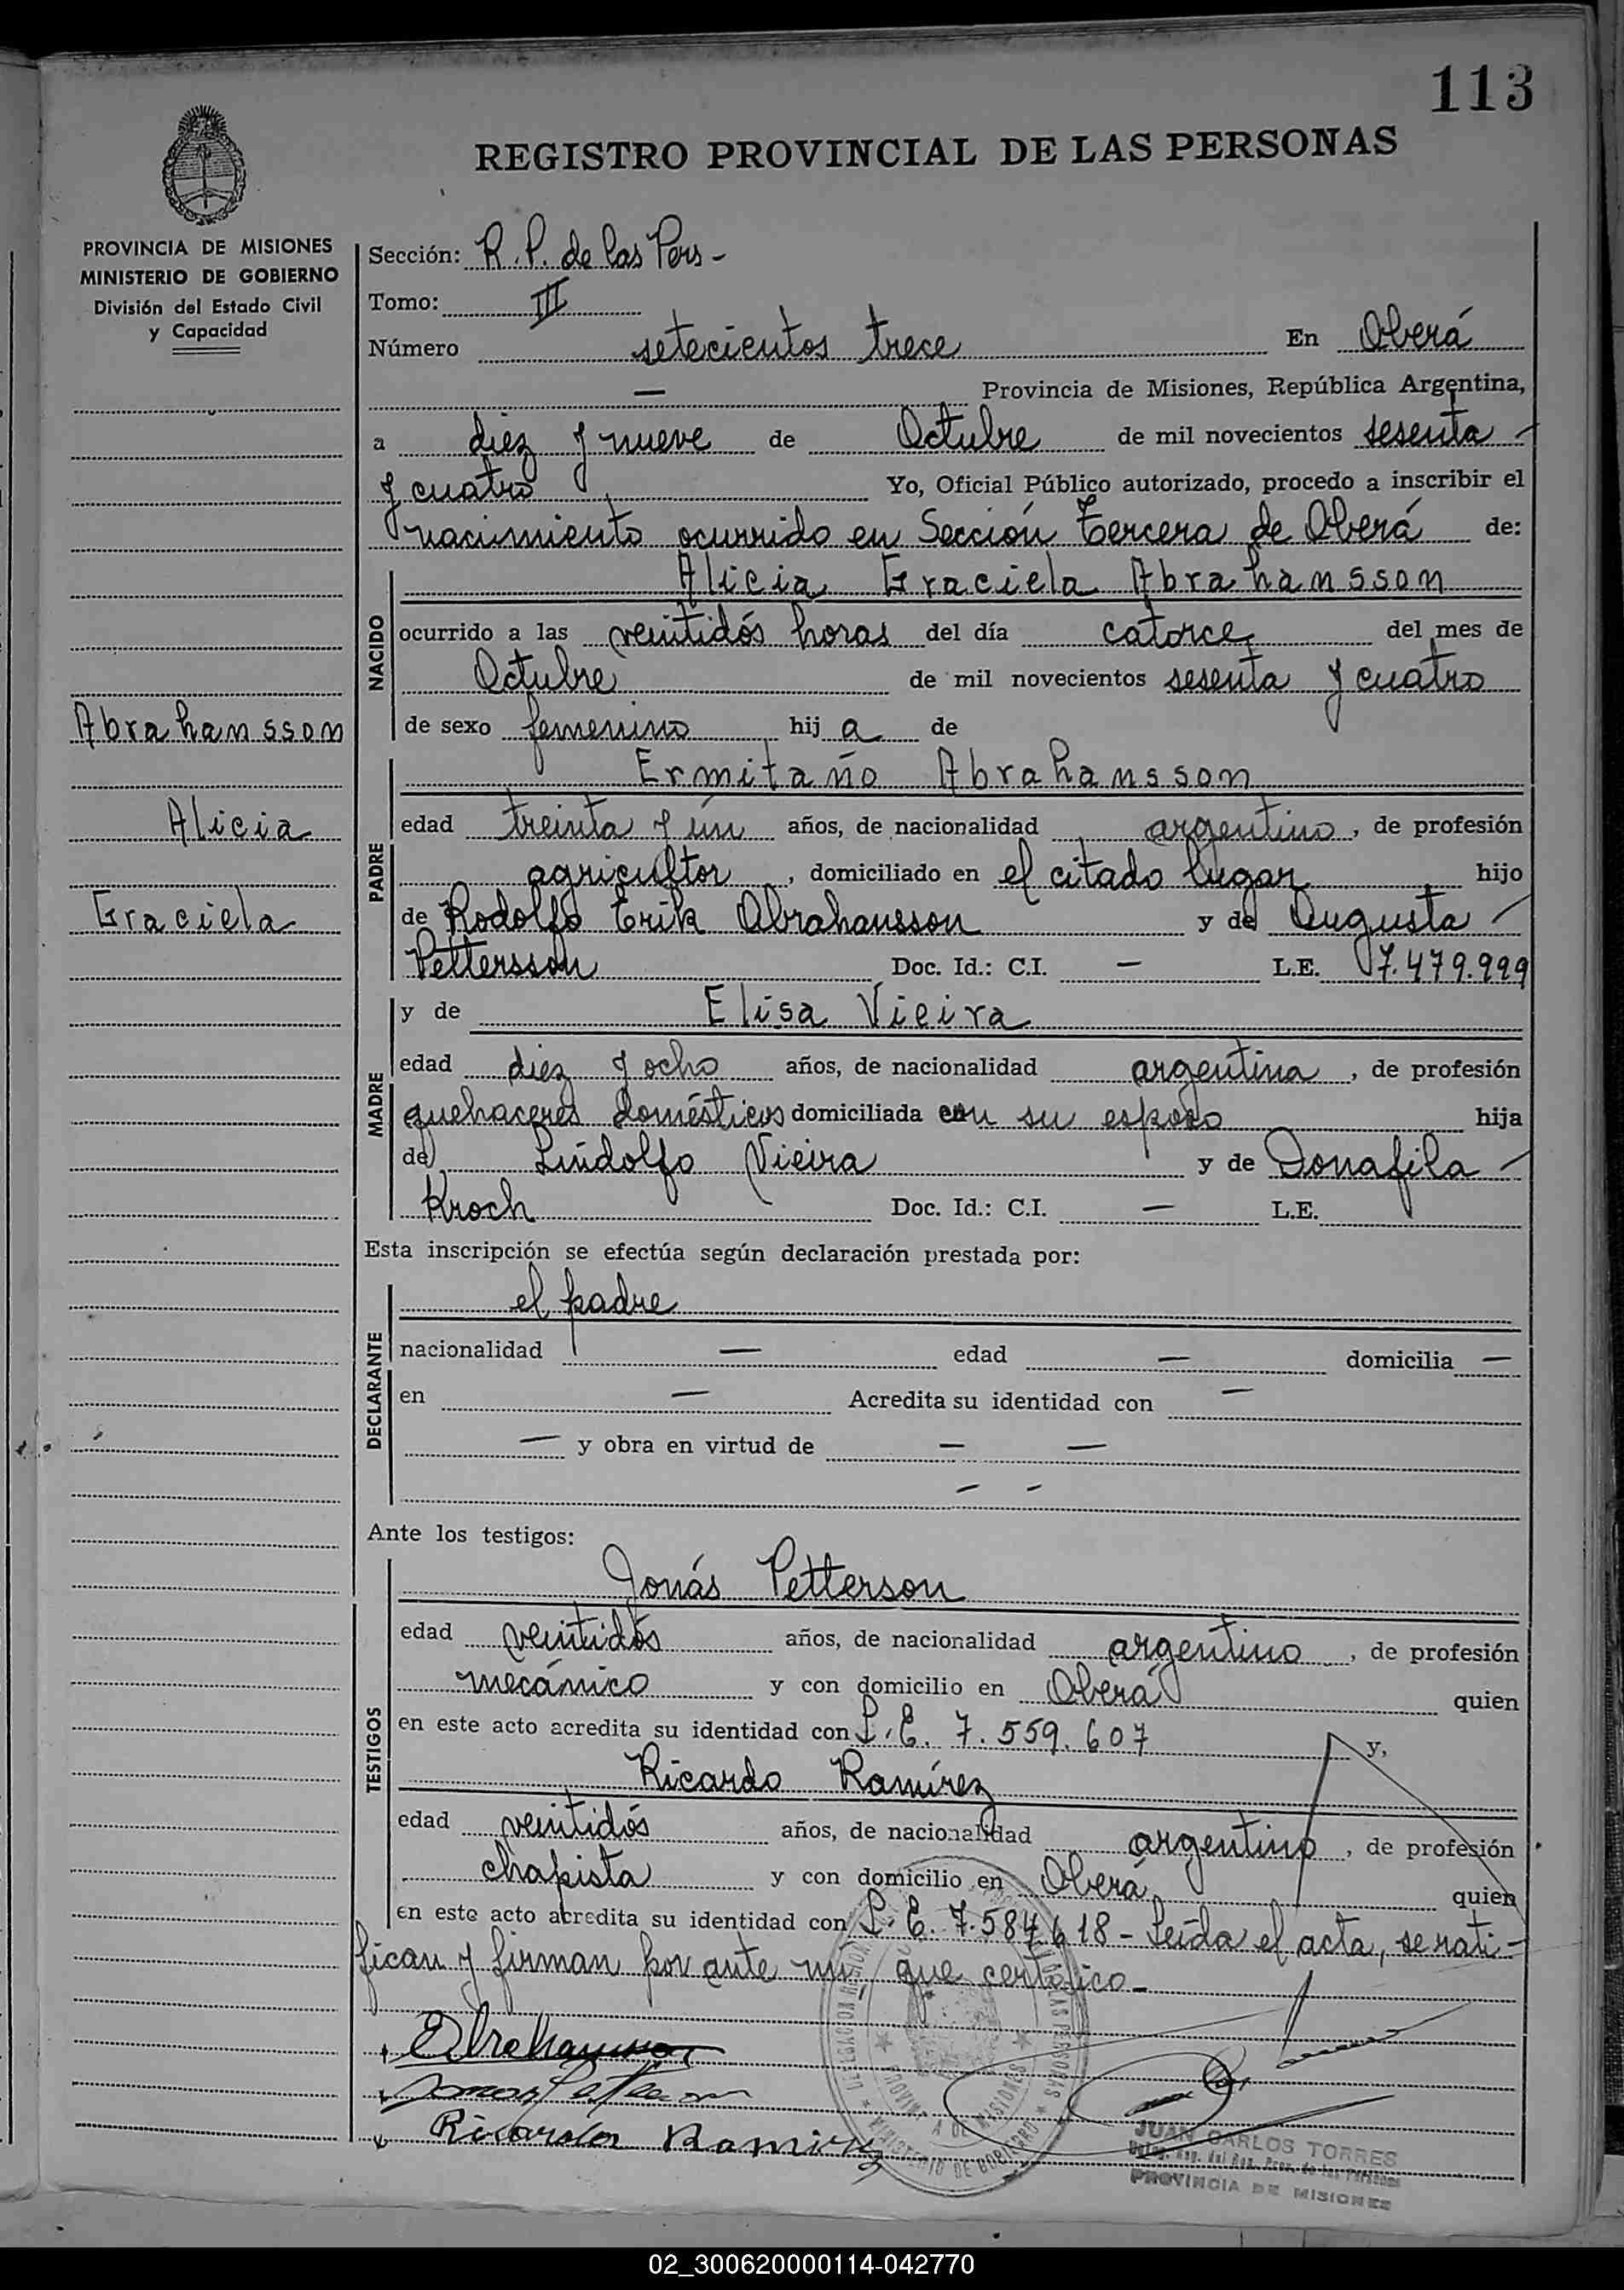 113
REGISTRO PROVINCIAL DE LAS PERSONAS
PROVINCIA DE MISIONES
MINISTERIO DE GOBIERNO
División del Estado Civil
y Capacidad
Sección: R. P. de las Pers -
Tomo: III
Número setecientos trece En Oberá
— Provincia de Misiones, República Argentina,
a diez y nueve de Octubre de mil novecientos sesenta -
y cuatro Yo, Oficial Público autorizado, procedo a inscribir el
nacimiento ocurrido en Sección Tercera de Oberá de:
NACIDO
Alicia Graciela Abrahansson
ocurrido a las veintidós horas del día catorce del mes de
Octubre de mil novecientos sesenta y cuatro
de sexo femenino hij a de
Abrahansson
Alicia
Graciela
PADRE
Ermitaño Abrahansson
edad treinta y ún años, de nacionalidad argentino, de profesión
agricultor, domiciliado en el citado lugar hijo
de Rodolfo Erik Abrahansson y de Augusta -
Pettersson Doc. Id.: C.I. — L.E. 7.479.999
MADRE
y de Elisa Vieira
edad diez y ocho años, de nacionalidad argentina, de profesión
quehaceres domésticos domiciliada con su esposo hija
de Lindolfo Vieira y de Donafila -
Kroch Doc. Id.: C.I. — L.E.
Esta inscripción se efectúa según declaración prestada por:
DECLARANTE
el padre
nacionalidad — edad — domicilia —
en — Acredita su identidad con —
— y obra en virtud de — —
— —
Ante los testigos:
TESTIGOS
Jonás Petterson
edad veintidós años, de nacionalidad argentino, de profesión
mecánico y con domicilio en Oberá quien
en este acto acredita su identidad con L. E. 7.559.607 y,
Ricardo Ramírez
edad veintidós años, de nacionalidad argentino, de profesión
chapista y con domicilio en Oberá quien
en este acto acredita su identidad con L. E. 7.584.618 - Leída el acta, se rati-
fican y firman por ante mí, que certifico -
Ricardo Ramirez
MINISTERIO DE GOBIERNO
PROVINCIA DE MISIONES
JUAN CARLOS TORRES
PROVINCIA DE MISIONES
02_300620000114-042770